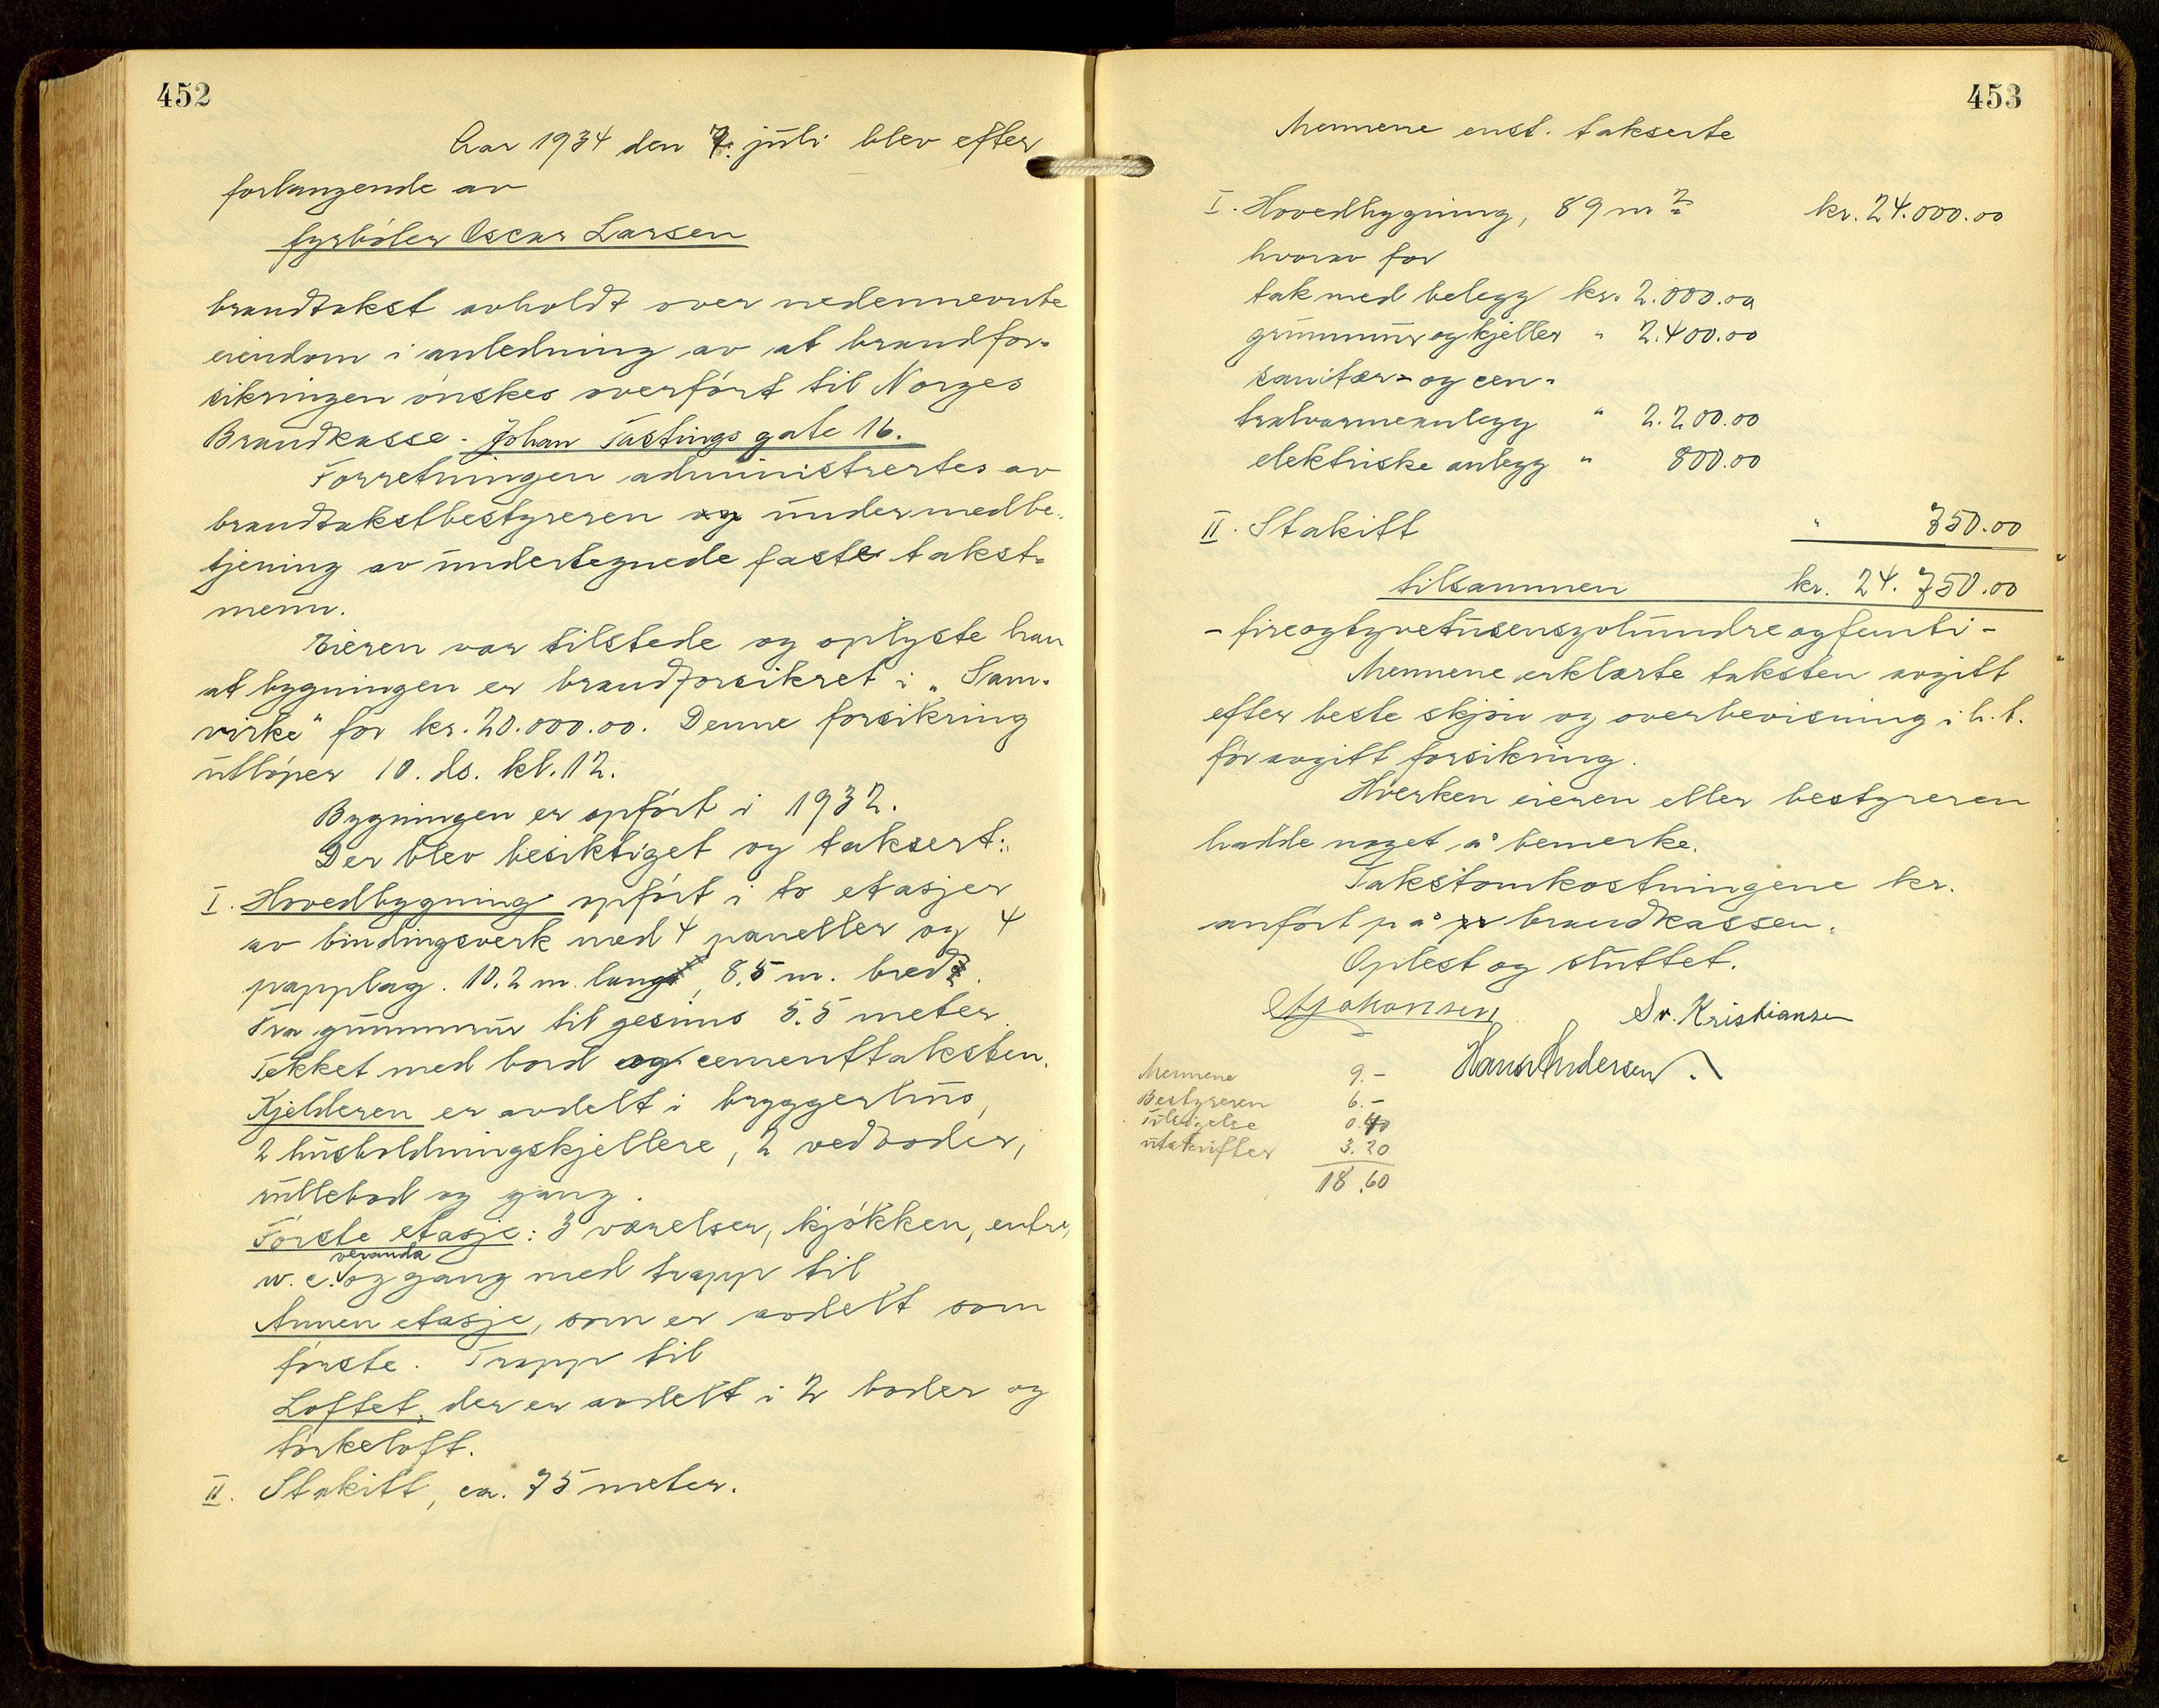 452
Aar 1934 den 7. juli blev efter
forlangende av
fyrbøter Oscar Larsen
brandtakst avholdt over nedennevnte
eiendom i anledning av at brandfor-
sikringen ønskes overført til Norges
Brandkasse. Johan Tastings gate 16.
Forretningen administrertes av
brandtakstbestyreren og under medbe-
tjening av undertegnede faste takst-
menn.
Eieren var tilstede og oplyste han
at bygningen er brandforsikret i „Sam-
virke" for kr. 20.000.00. Denne forsikring
utløper 10. ds. kl. 12.
Bygningen er opført i 1932.
Der blev besiktiget og taksert:
I. Hovedbygning opført i to etasjer
av bindingsverk med 4 paneller og 4
papplag. 10.2 m. lang, 8.5 m. bred.
Fra grunnmur til gesims 5.5 meter.
Tekket med bord og cementtaksten.
Kjelderen er avdelt i bryggerhus,
2 husholdningskjellere, 2 vedboder,
rullebod og gang.
Første etasje: 3 værelser, kjøkken, entre,
veranda
w.c. og gang med trapp til
Annen etasje, som er avdelt som
første. Trapp til
Loftet, der er avdelt i 2 boder og
tørkeloft.
II. Stakitt, ca. 75 meter.
453
Mennene enst. takserte
I. Hovedbygning, 89 m2 kr. 24.000.00
hvorav for
tak med belegg kr. 2.000.00
grunnmur og kjeller " 2.400.00
sanitær- og cen-
tralvarmeanlegg " 2.200.00
elektriske anlegg " 800.00
II. Stakitt " 750.00
tilsammen kr. 24.750.00
- fireogtyvetusensyvhundreogfemti -
Mennene erklærte taksten avgitt
efter beste skjøn og overbevisning i h.t.
før avgitt forsikring.
Hverken eieren eller bestyreren
hadde noget å bemerke.
Takstomkostningene kr.
anført på brandkassen.
Oplest og sluttet.
Johansen Sv. Kristiansen
Hans Andersen
Mennene 9.-
Bestyreren 6.-
0.40
utskrifter 3.20
18.60